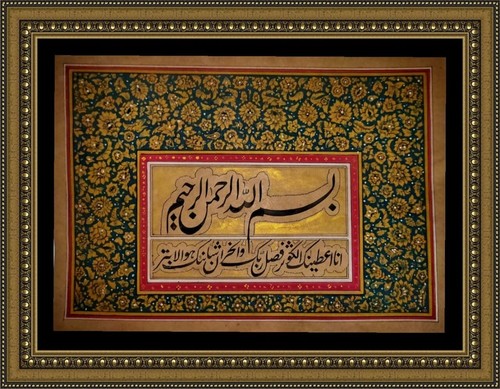 بسم الله الرحمن الرحیم
انا اعطینک الکوثر فصل لربک وانحر ان شانئک هو الابتر